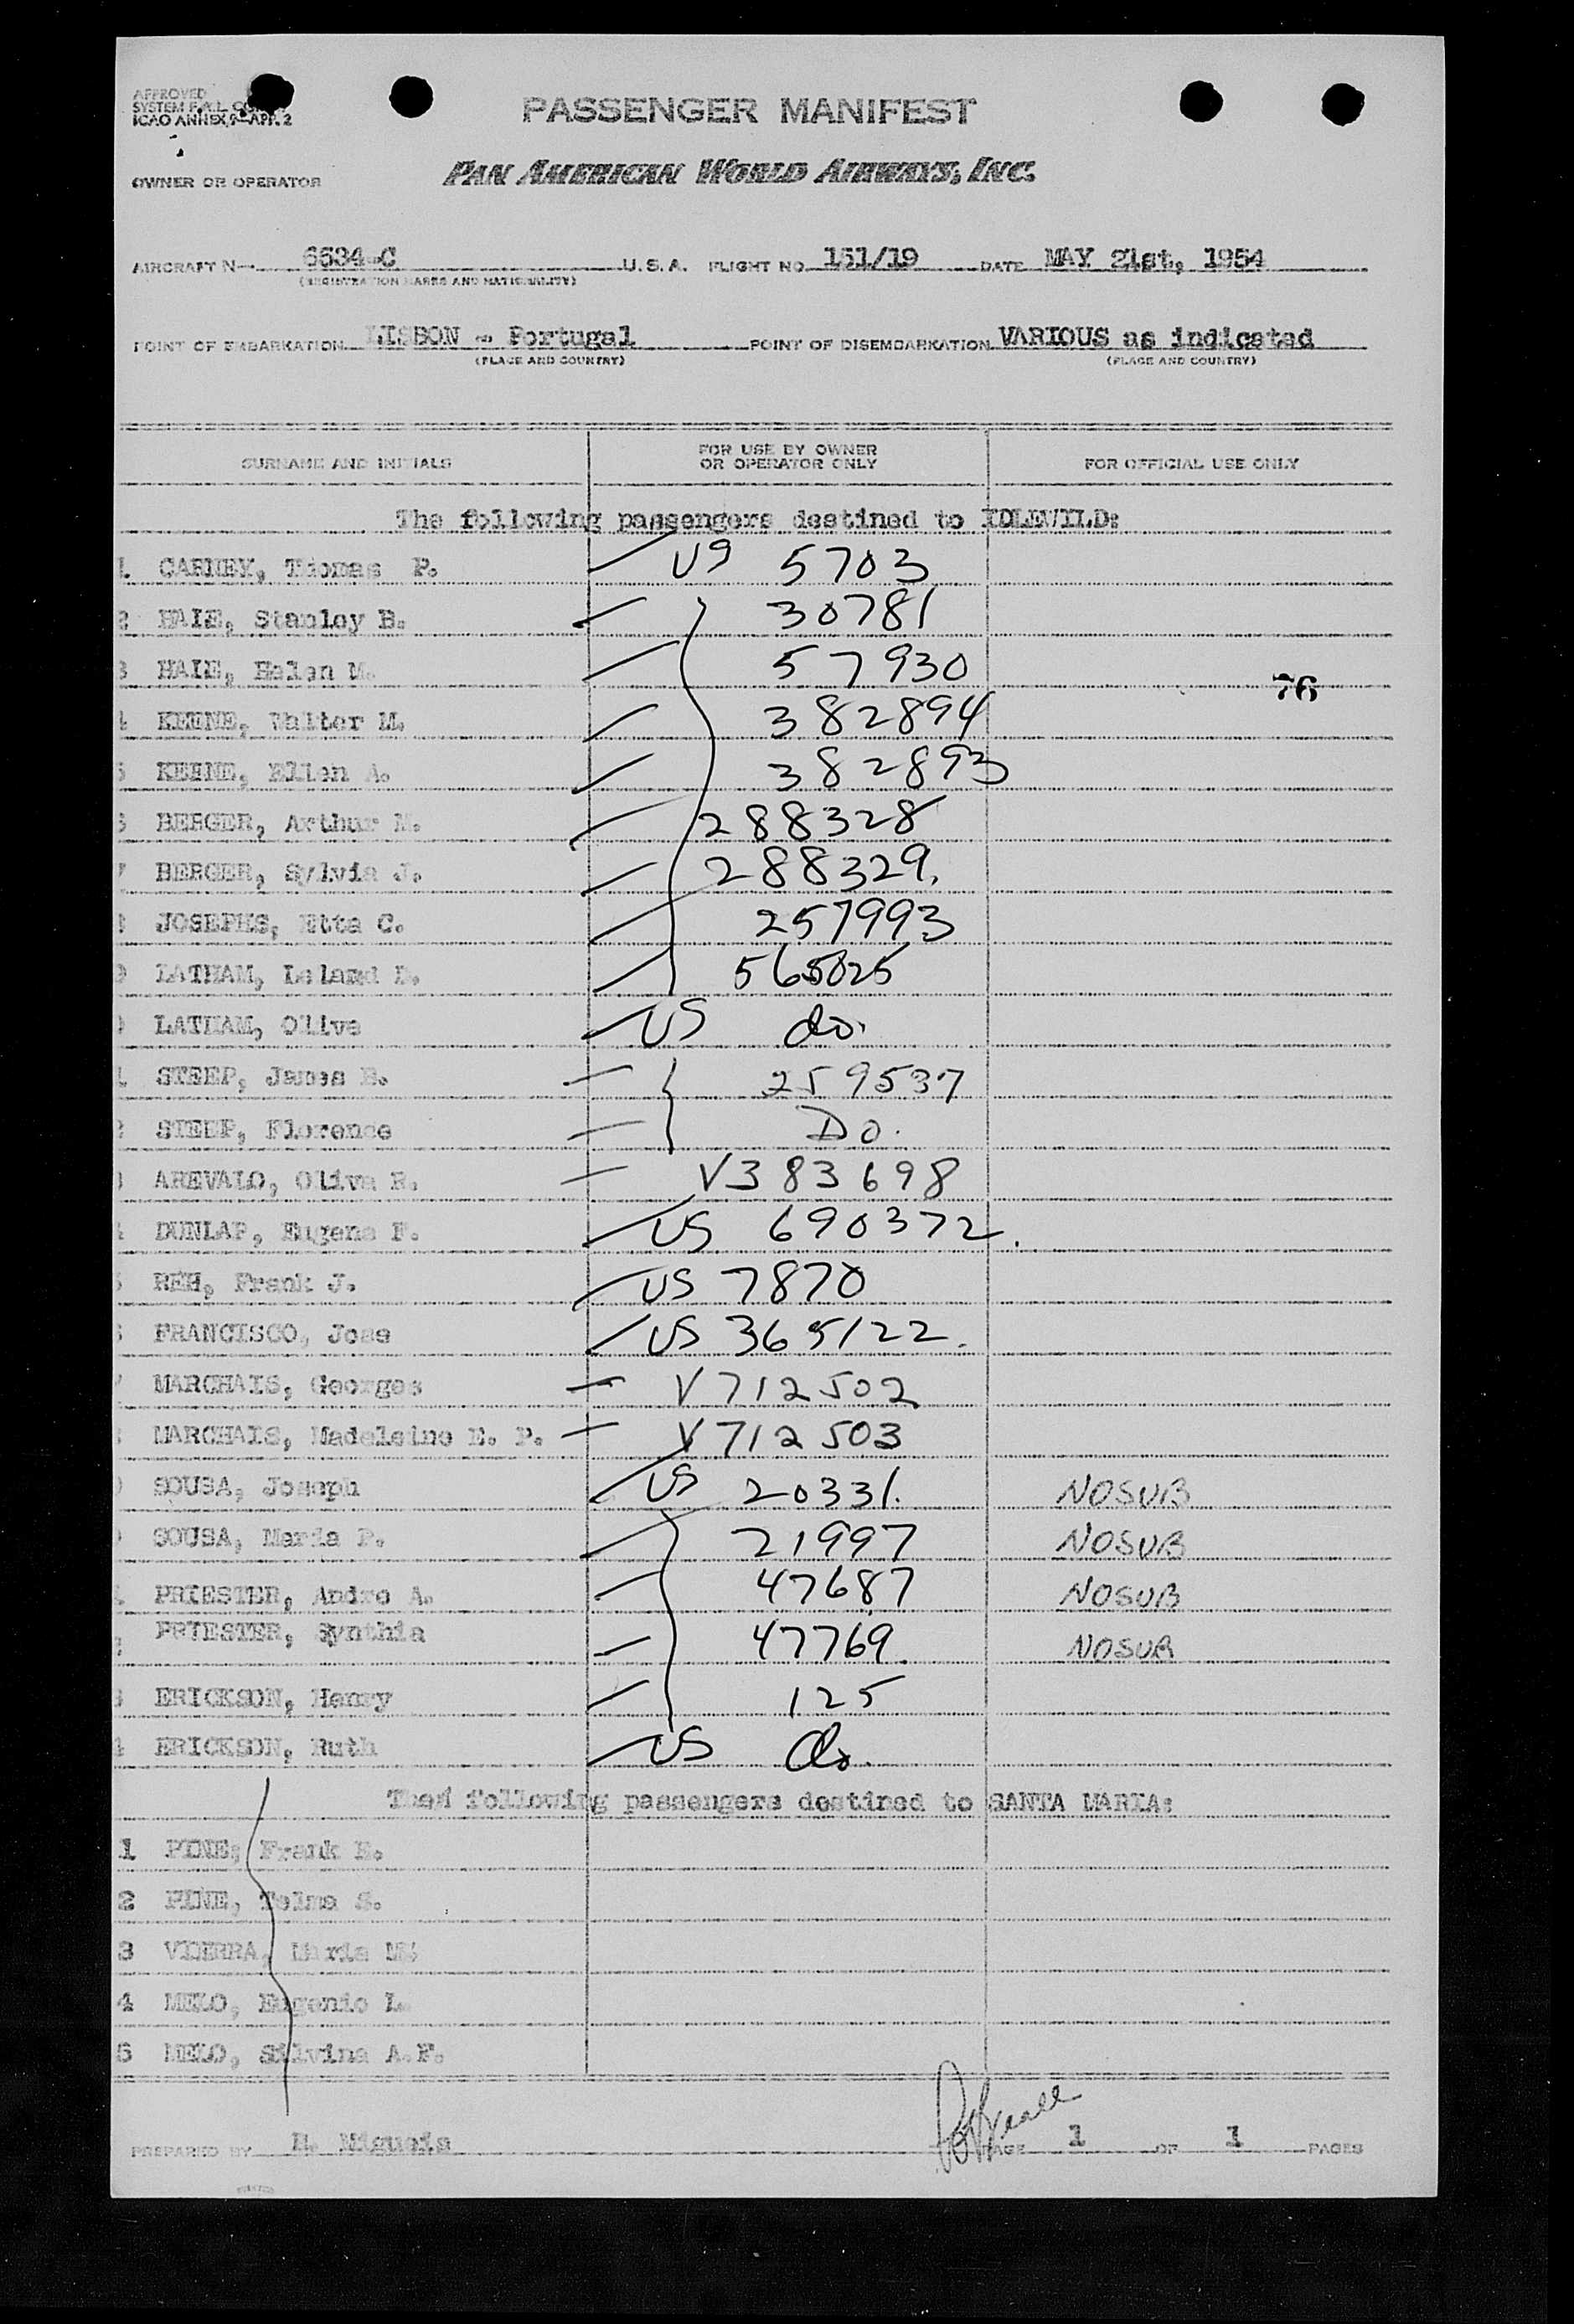 APPROVED
SYSTEM F.A.L.
ICAO ANNEX 9-APP. 2
PASSENGER MANIFEST
OWNER OR OPERATOR PAN AMERICAN WORLD AIRWAYS, INC.
AIRCRAFT N- 6534-C U.S.A. FLIGHT NO 151/19 DATE MAY 21st, 1954
(REGISTRATION MARKS AND NATIONALITY)
POINT OF EMBARKATION LISBON - Portugal POINT OF DISEMBARKATION VARIOUS as indicated
(PLACE AND COUNTRY) (PLACE AND COUNTRY)
SURNAME AND INITIALS FOR USE BY OWNER OR OPERATOR ONLY FOR OFFICIAL USE ONLY
The following passengers destined to IDLEWILD:
1 CARNEY, Thomas P. US 5703
2 HAIE, Stanley B. 30781
3 HAIE, Helen M. 57930
76
4 KEENE, Walter M. 382894
5 KEENE, Ellen A. 382893
6 BERGER, Arthur 288328
7 BERGER, Sylvia J. 288329.
JOSEPHS, Etta C. 257993
9 LATHAM, Leland 565025
LATHAM, Olive US do.
1 STEEP, James 259537
2 STEEP, Florence Do.
AREVALO, Oliva R. V383698
DUNLAP, Eugene F. US 690372.
REH, Frank J. US 7870
FRANCISCO, Jose US 365122.
7 MARCHAIS, Georges V712502
MARCHAIS, Madeleine E. P. V712503
SOUSA, Joseph US 20331. NOSUB
SOUSA, Maria P. 21997 NOSUB
PRIESTER, Andre A. 47687 NOSUB
PRIESTER, Synthia 47769 NOSUB
3 ERICKSON, Henry 125
4 ERICKSON, Ruth US do.
Thed following passengers destined to SANTA MARIA:
1 PINE, Frank E.
2 PINE, Telma S.
3 VIERRA, Maria M.
4 MELO, Eugenio L.
5 MELO, Silvina A.F.
PREPARED BY Migueis PAGE 1 OF 1 PAGES